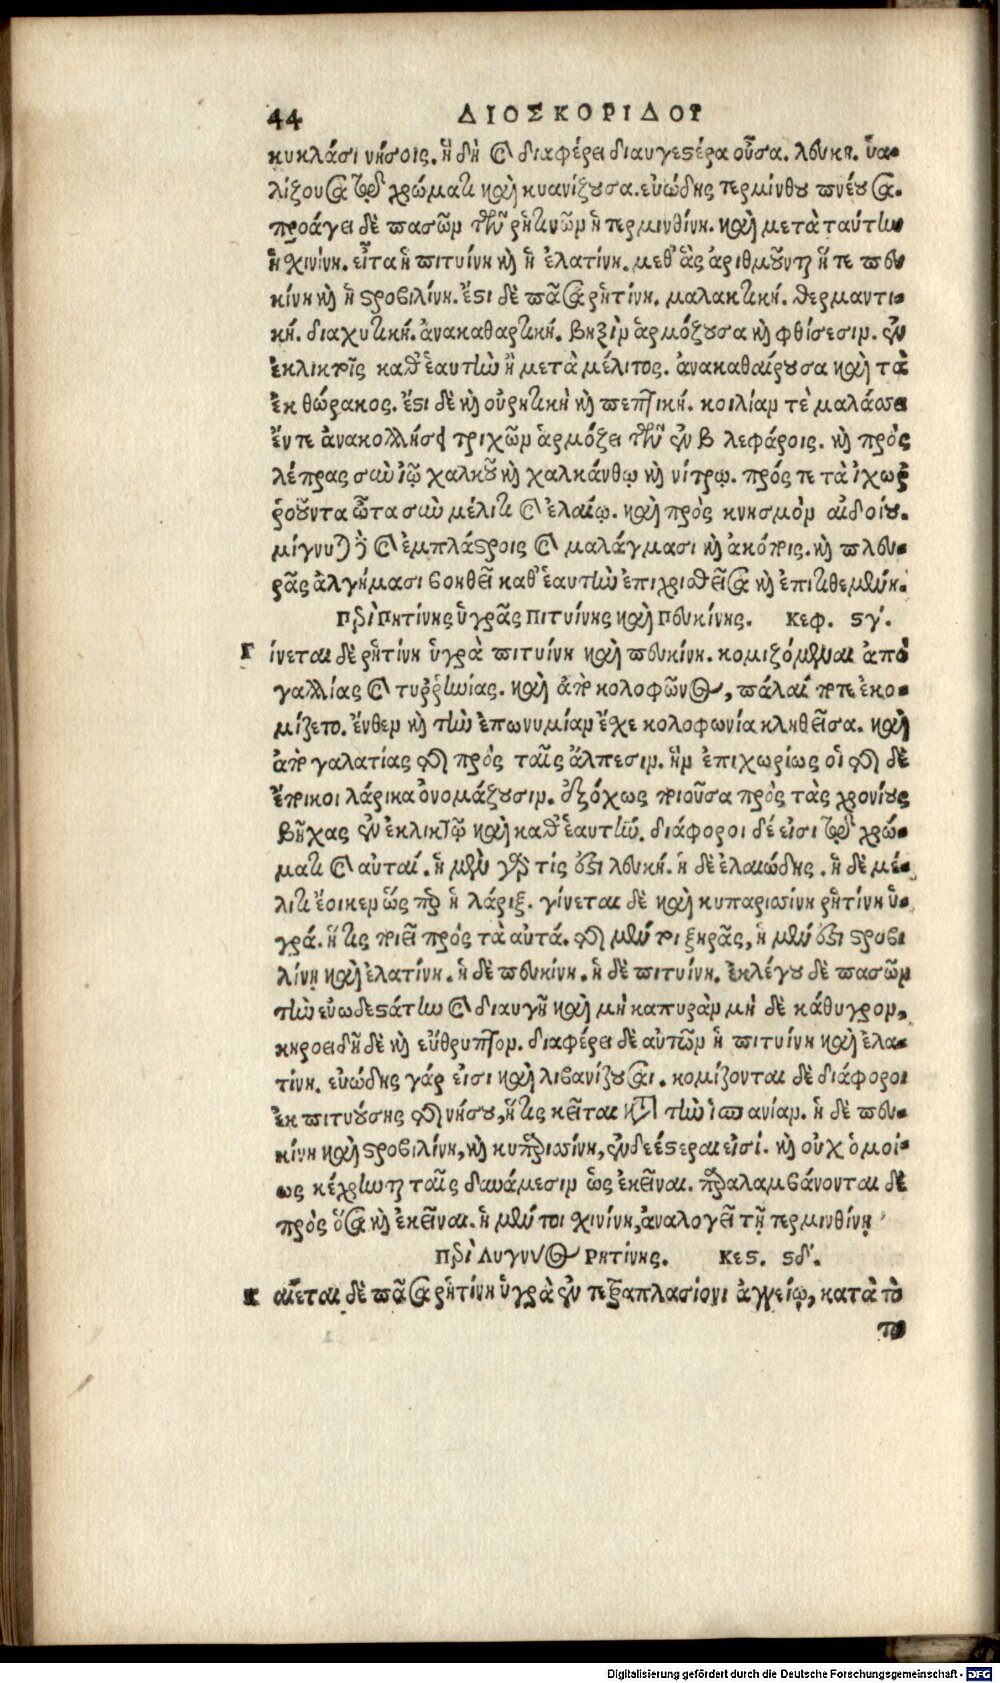 44 ΔΙΟΣΚΟΡΙΔΟΥ
κυκλάσι νήσοις. ἣ δὴ καὶ διαφέρει διαυγεστέρα οὖσα. λευκὴ. ὑα-
λίζουσα τῷ χρώματι καὶ κυανίζουσα. εὐώδης τερμίνθου πνέουσα.
προάγει δὲ πασῶν τῶν ῥητινῶν ἡ τερμινθίνη. καὶ μετὰ ταύτην
ἡ χινίνη. εἶτα ἡ πιτυίνη καὶ ἡ ἐλατίνη. μεθ' ἃς ἀριθμοῦνται ἥ τε πευ
κίνη καὶ ἡ στροβιλίνη. ἔστι δὲ πᾶσα ῥητίνη. μαλακτική. θερμαντι-
κή. διαχυτική. ἀνακαθαρτική. βηξὶν ἁρμόζουσα καὶ φθίσεσιν. ἐν
ἐκλικτοῖς καθ' ἑαυτὴν ἢ μετὰ μέλιτος. ἀνακαθαίρουσα καὶ τὰ
ἐκ θώρακος. ἔστι δὲ καὶ οὐρητικὴ καὶ πεπτική. κοιλίαν τὲ μαλάσσει
ἔν τε ἀνακολλήσει τριχῶν ἁρμόζει τῶν ἐν βλεφάροις. καὶ πρὸς
λέπρας σὺν ἰῷ χαλκοῦ καὶ χαλκάνθῳ καὶ νίτρῳ. πρός τε τὰ ἰχωρ
ῥοοῦντα ὦτα σὺν μέλιτι καὶ ἐλαίῳ. καὶ πρὸς κνησμὸν αἰδοίου.
μίγνυται καὶ ἐμπλάστροις καὶ μαλάγμασι καὶ ἀκόποις. καὶ πλευ-
ρᾶς ἀλγήμασι βοηθεῖ καθ' ἑαυτὴν ἐπιχρισθεῖσα καὶ ἐπιτιθεμένη.
Περὶ Ρητίνης ὑγρᾶς πιτυίνης καὶ πευκίνης. Κεφ. ϛγ'.
Γίνεται δὲ ῥητίνη ὑγρὰ πιτυίνη καὶ πευκίνη. κομιζόμεναι ἀπὸ
γαλλίας καὶ τυρρηνίας. καὶ ἀπὸ κολοφῶνος, πάλαι ποτε ἐκο-
μίζετο. ἔνθεν καὶ τὴν ἐπωνυμίαν ἔχε κολοφωνία κληθεῖσα. καὶ
ἀπὸ γαλατίας τῆς πρὸς ταῖς ἄλπεσιν. ἣν ἐπιχωρίως οἱ τῇ δὲ
ἔποικοι λάρικα ὀνομάζουσιν. ἐξόχως ποιοῦσα πρὸς τὰς χρονίους
βῆχας ἐν ἐκλικτῷ καὶ καθ' ἑαυτήν. διάφοροι δέ εἰσι τῷ χρώ-
ματι καὶ αὐταί. ἡ μὲν γάρ τίς ἐστι λευκή. ἡ δὲ ἐλαιώδης. ἡ δὲ μέ-
λιτι ἔοικεν ὥσπερ ἡ λάριξ. γίνεται δὲ καὶ κυπαρισσίνη ῥητίνη ὑ-
γρά. ἥτις ποιεῖ πρὸς τὰ αὐτά. τῆς μέντοι ξηρᾶς, ἡ μέν ἐστι στροβι
λίνη καὶ ἐλατίνη. ἡ δὲ πευκίνη. ἡ δὲ πιτυίνη. ἐκλέγου δὲ πασῶν
τὴν εὐωδεστάτην καὶ διαυγῆ καὶ μὴ καπυρὰν μὴ δὲ κάθυγρον,
κηροειδῆ δὲ καὶ εὔθρυπτον. διαφέρει δὲ αὐτῶν ἡ πιτυίνη καὶ ἐλα-
τίνη. εὐώδης γάρ εἰσι καὶ λιβανίζουσαι. κομίζονται δὲ διάφοροι
ἐκ πιτυούσης τῆς νήσου, ἥτις κεῖται κατὰ τὴν ἱσπανίαν. ἡ δὲ πευ-
κίνη καὶ στροβιλίνη, καὶ κυπαρισσίνη, ἐνδεέστεραι εἰσί. καὶ οὐχ ὁμοί-
ως κέχρηνται ταῖς δυνάμεσιν ὡς ἐκεῖναι. παραλαμβάνονται δὲ
πρὸς ὅσα καὶ ἐκεῖναι. ἡ μέντοι χινίνη, ἀναλογεῖ τῇ τερμινθίνῃ
Περὶ Λυγνύος Ρητίνης. Κεϛ. ϛδ'.
Καίεται δὲ πᾶσα ῥητίνη ὑγρὰ ἐν τετραπλασίονι ἀγγείῳ, κατὰ τὸ
το
Digitalisierung gefördert durch die Deutsche Forschungsgemeinschaft - DFG